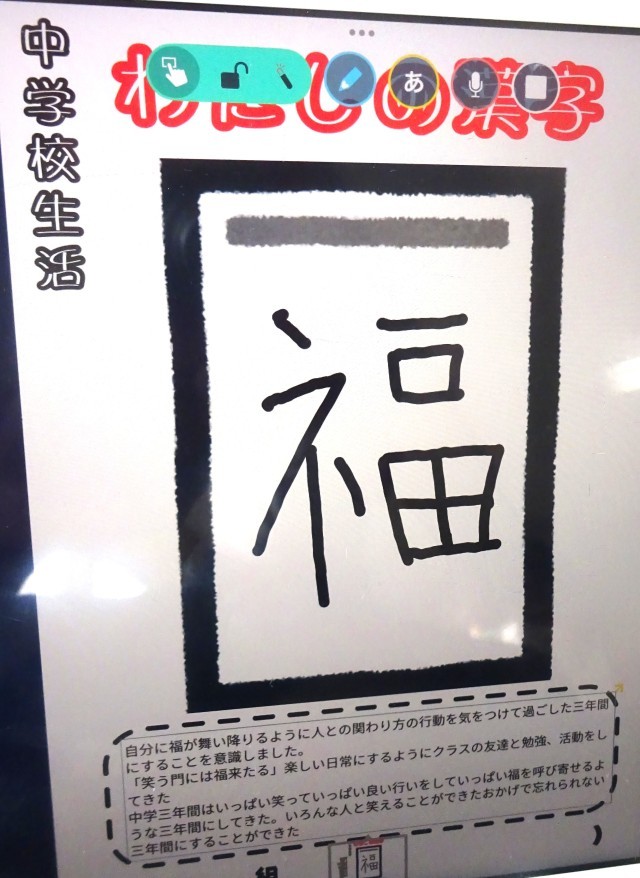 中学校生活
わたしの漢字
あ
福
自分に福が舞い降りるように人との関わり方の行動を気をつけて過ごした三年間
にすることを意識しました。
「笑う門には福来たる」楽しい日常にするようにクラスの友達と勉強、活動をし
てきた
中学三年間はいっぱい笑っていっぱい良い行いをしていっぱい福を呼び寄せるよ
うな三年間にしてきた。いろんな人と笑えることができたおかげで忘れられない
三年間にすることができた
組
福